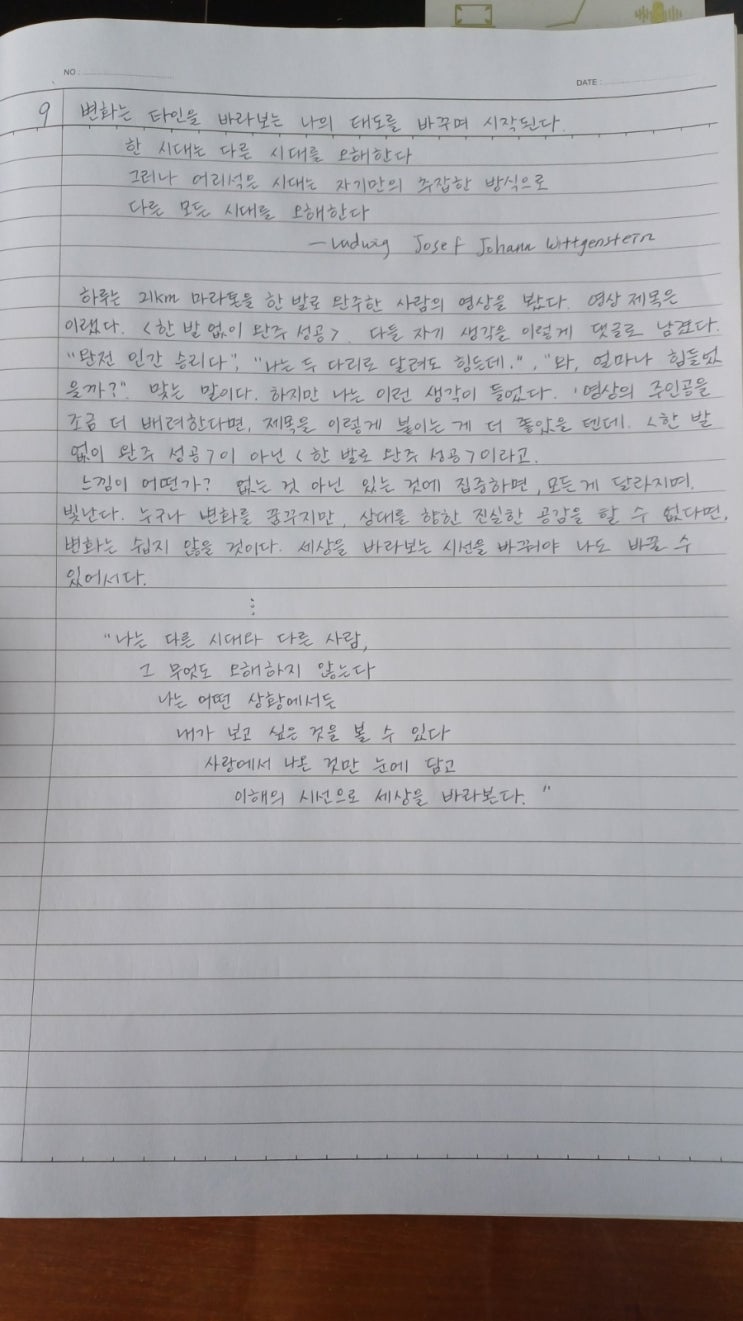 NO :
DATE :
9 변화는 타인을 바라보는 나의 태도를 바꾸며 시작된다.
한 시대는 다른 시대를 오해한다
그러나 어리석은 시대는 자기만의 추잡한 방식으로
다른 모든 시대를 오해한다
—Ludwig Josef Johann Wittgenstein
하루는 21km 마라톤을 한 발로 완주한 사람의 영상을 봤다. 영상 제목은
이랬다. <한 발 없이 완주 성공>. 다들 자기 생각을 이렇게 댓글로 남겼다.
"완전 인간 승리다", "나는 두 다리로 달려도 힘든데.", "와, 얼마나 힘들었
을까?". 맞는 말이다. 하지만 나는 이런 생각이 들었다. '영상의 주인공을
조금 더 배려한다면, 제목을 이렇게 붙이는 게 더 좋았을 텐데. <한 발
없이 완주 성공>이 아닌 <한 발로 완주 성공>이라고.
느낌이 어떤가? 없는 것 아닌 있는 것에 집중하면, 모든게 달라지며.
빛난다. 누구나 변화를 꿈꾸지만, 상대를 향한 진실한 공감을 할 수 없다면,
변화는 쉽지 않을 것이다. 세상을 바라보는 시선을 바꿔야 나도 바꿀 수
있어서다.
⋮
"나는 다른 시대와 다른 사람,
그 무엇도 오해하지 않는다
나는 어떤 상황에서든
내가 보고 싶은 것을 볼 수 있다
사랑에서 나온 것만 눈에 담고
이해의 시선으로 세상을 바라본다. "